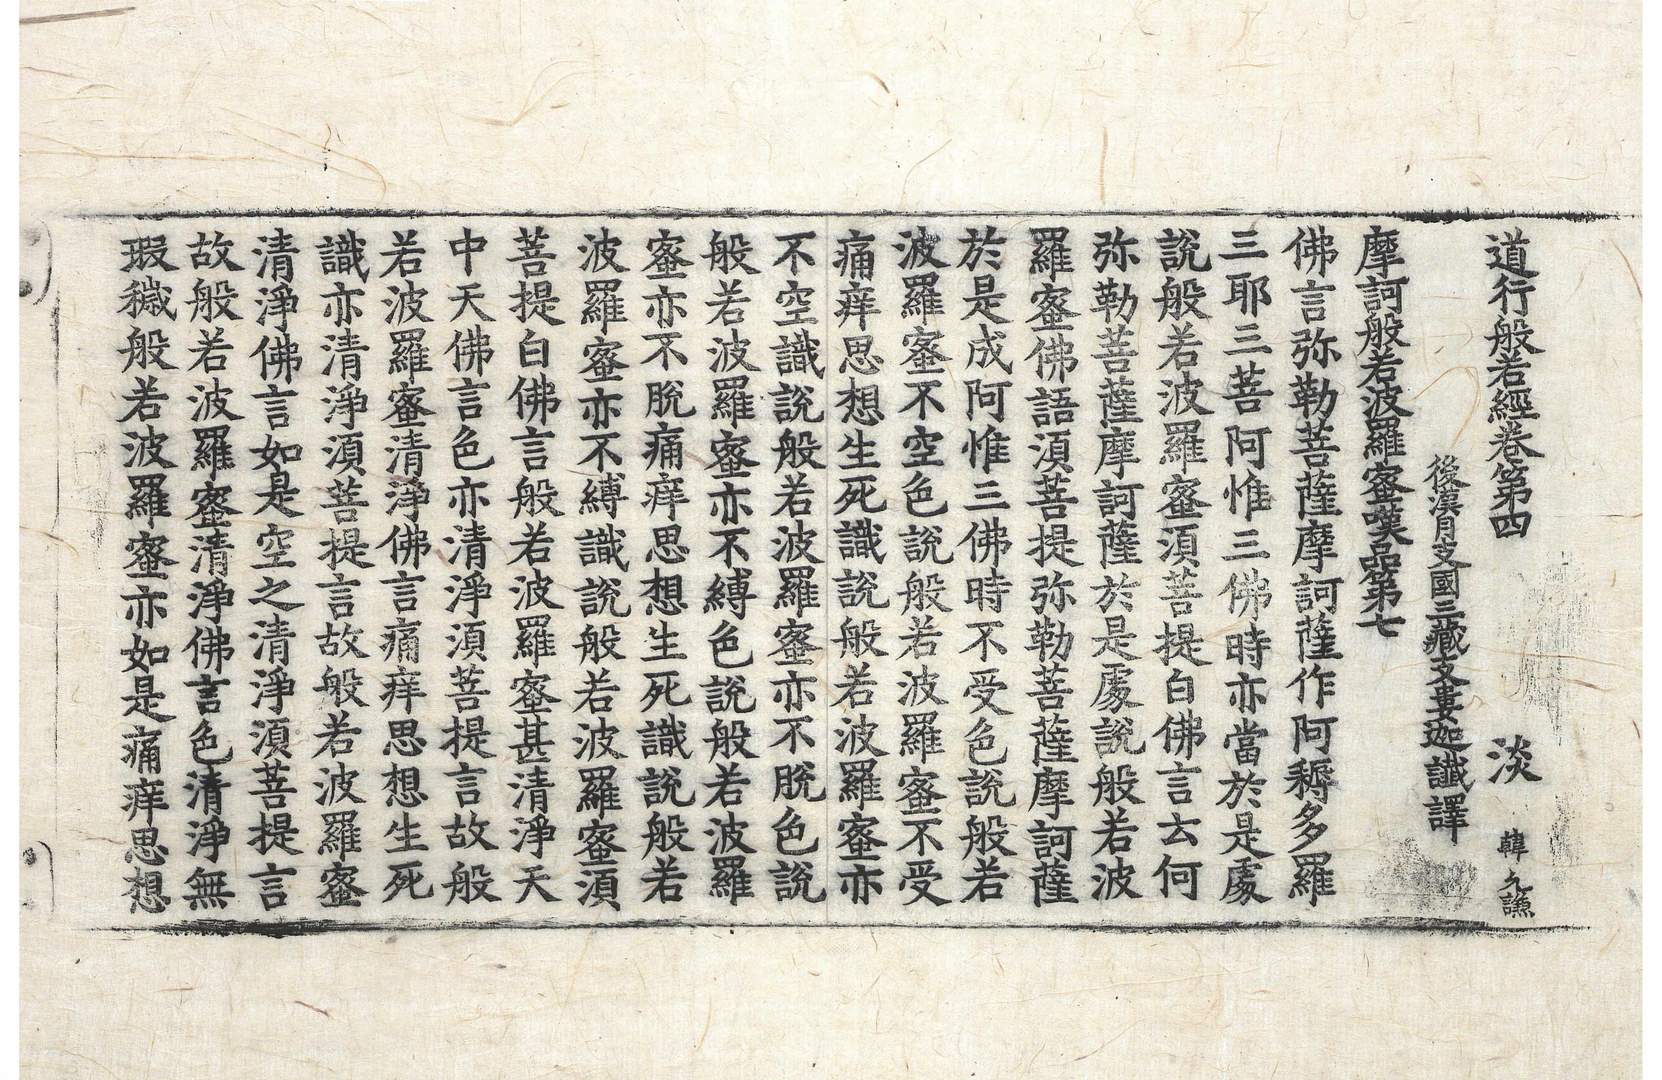 道行般若經卷第四 淡 韓 允謙
後漢月支國三藏支婁迦讖譯
摩訶般若波羅蜜嘆品第七
佛言弥勒菩薩摩訶薩作阿耨多羅
三耶三菩阿惟三佛時亦當於是處
說般若波羅蜜須菩提白佛言云何
弥勒菩薩摩訶薩於是處說般若波
羅蜜佛語須菩提弥勒菩薩摩訶薩
於是成阿惟三佛時不受色說般若
波羅蜜不空色說般若波羅蜜不受
痛痒思想生死識說般若波羅蜜亦
不空識說般若波羅蜜亦不脫色說
般若波羅蜜亦不縛色說般若波羅
蜜亦不脫痛痒思想生死識說般若
波羅蜜亦不縛識說般若波羅蜜須
菩提白佛言般若波羅蜜甚清淨天
中天佛言色亦清淨須菩提言故般
若波羅蜜清淨佛言痛痒思想生死
識亦清淨須菩提言故般若波羅蜜
清淨佛言如是空之清淨須菩提言
故般若波羅蜜清淨佛言色清淨無
瑕穢般若波羅蜜亦如是痛痒思想